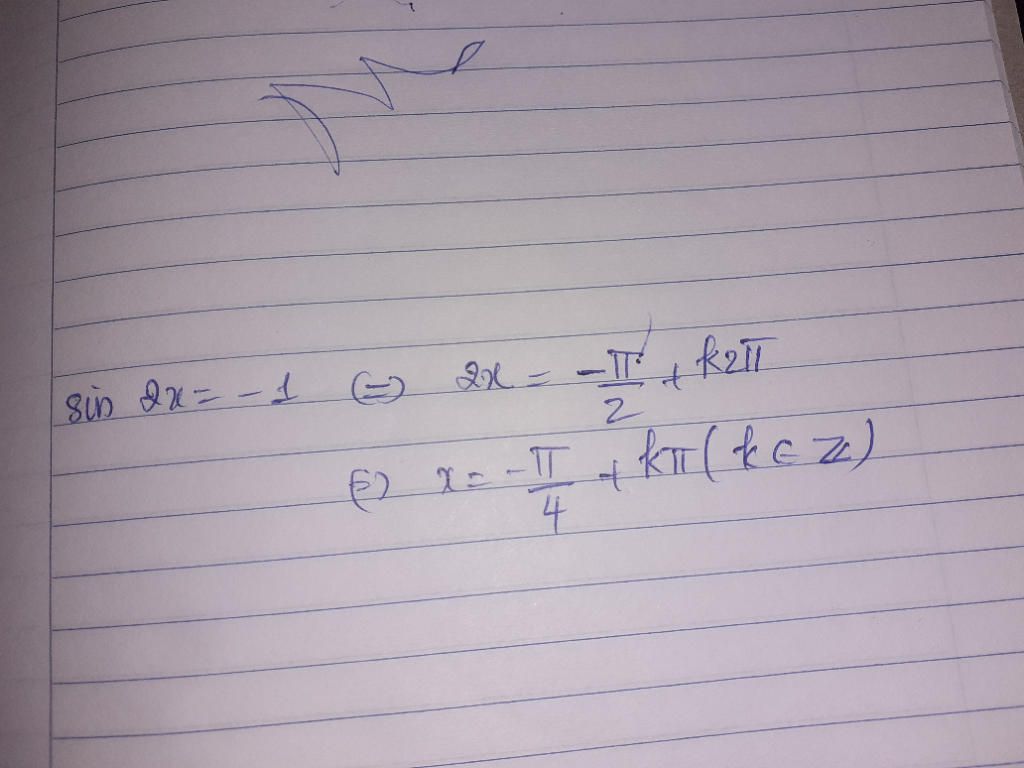 sin 2x = -1 (=) 2x = -π/2 + k2π
(=) x = -π/4 + kπ ( k ∈ Z )